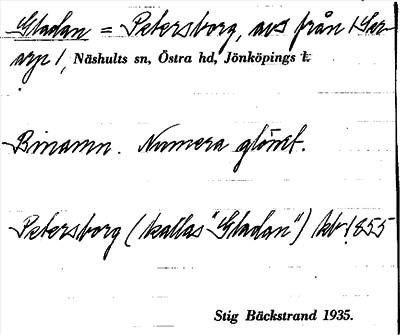 Gladan = Petersborg, avs från (Ser-
arp), Näshults sn, Östra hd, Jönköpings l:
Binamn. Numera glömt.
Petersborg (kallas "Gladan") kb 1855
Stig Bäckstrand 1935.